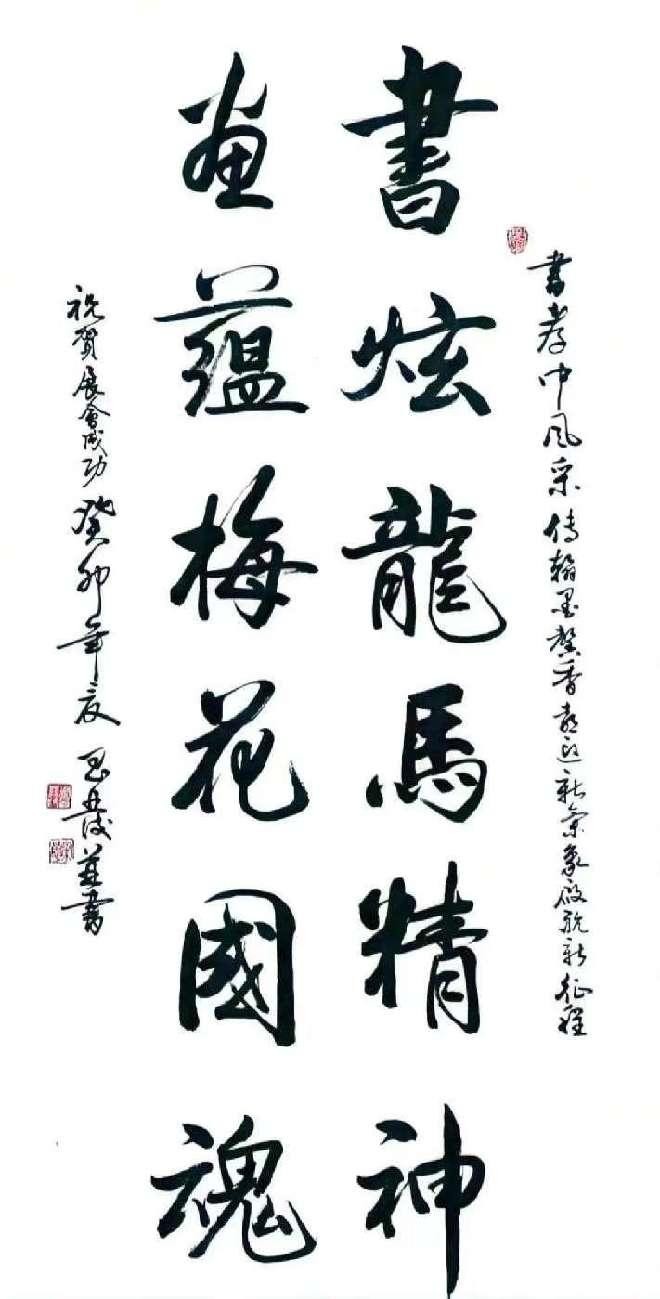 書孝中风采傳翰墨馨香喜迎新氣象啟航新征程
書炫龍馬精神
画蘊梅花國魂
祝賀展會成功 癸卯年夏 並書